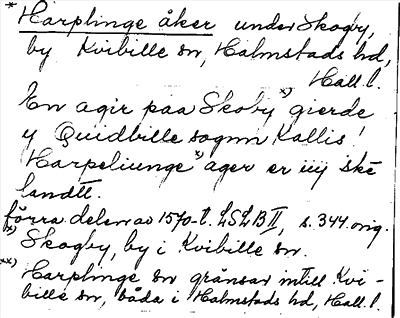 * Harplinge åker under Skogby,
by Kvibille sn, Halmstads hd,
Hall. l.
En agir paa Skoby *) gierde
y Quidbille sognn Kallis
Harpeliunge **) ager er iiij ske
landtt.
förra delen av 1570-t. LSLB II, s. 344 orig.
*) Skogby, by i Kvibille sn.
**) Harplinge sn gränsar intill Kvi-
bille sn, båda i Halmstads hd, Hall. l.